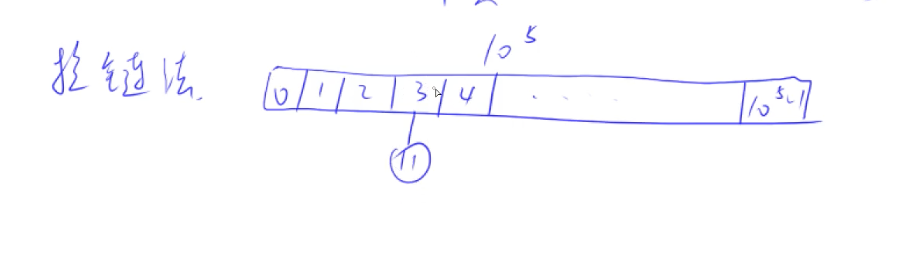 拉链法
10^5
0 1 2 3 4 ..... 10^5-1
11